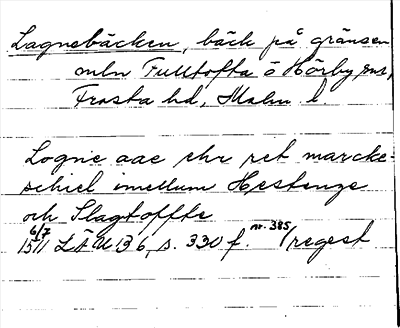 Lagnebäcken, bäck på gränsen
mln Fulltofta o Hörby snr,
Frosta hd, Malm. l.
Logne aae ehr ret marcke-
schiel imellum Hestenge
och Slagtoffte
6/7 1511 LÄU 136, s. 330 f. nr. 385 /regest